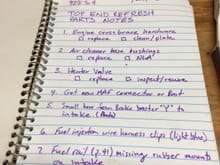 928 S4
TOP END REFRESH
PARTS NOTES
1. Engine cross brace hardware
□ replace □ clean/plate
2. Air cleaner box bushings
□ replace □ NLA?
3. Heater Valve
□ replace □ inspect/reuse
4. Got new MAF connector or Boot
5. Small hose from brake booster "Y" to
intake (Photo)
6. Fuel injection wire harness clips (light blue)
7. Fuel rail (?.41) missing rubber mounts
on intake